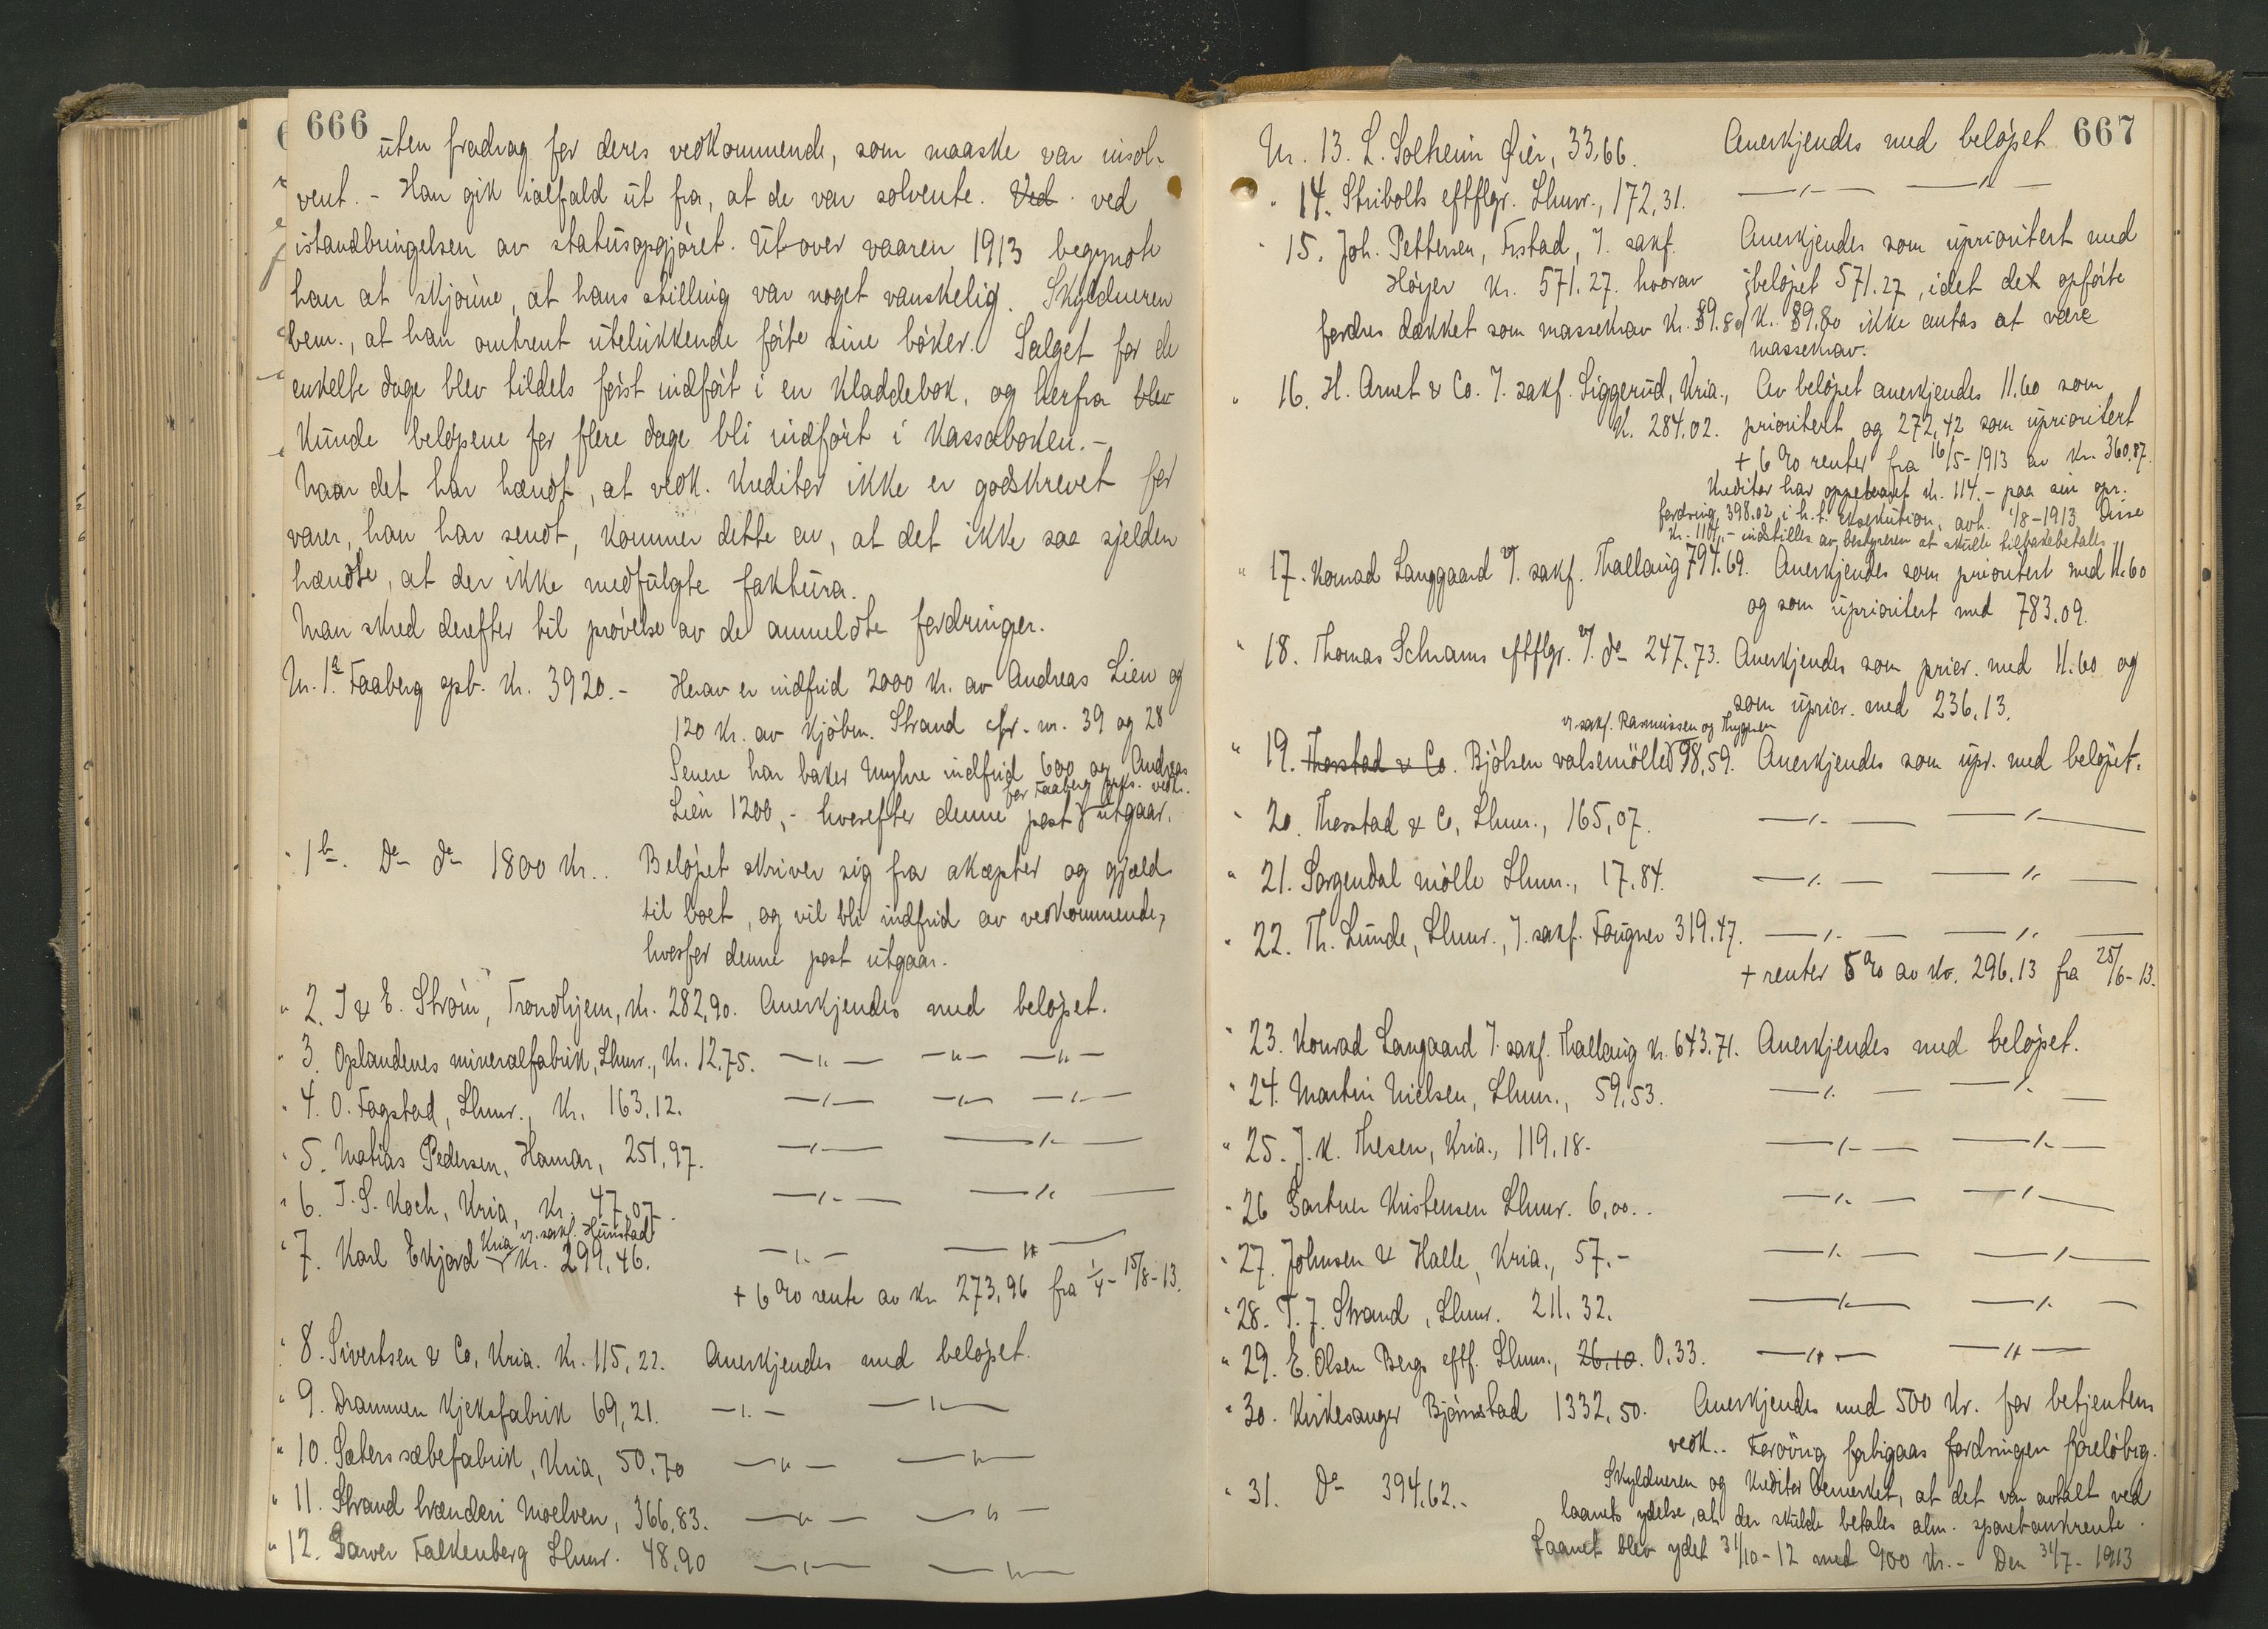 666
uten fradrag for deres vedkommende, som maaske var insol-
vent. - Han gik ialfald ut fra, at de var solvente. Ved ved
istandbringelsen av statusopgjöret. Utover vaaren 1913 begyndte
han at skjönne, at hans stilling var noget vanskelig. Skyldneren
bem., at han omtrent utelukkende förte sine böker. Salget for de
enkelte dage blev tildels först indfört i en kladdebok, og herfra blev
kunde belöpene for flere dage bli indfört i kassaboken. -
Naar det har hændt, at vedk. kreditor ikke er godskrevet for
varer, han har sendt, kommer dette av, at det ikke saa sjelden
hændte, at der ikke medfulgte faktura.
Man skred derefter til prövelse av de anmeldte fordringer.
Nr. 1a. Faaberg spb. kr. 3920.- Herav er indfrid 2000 kr. av Andreas Lien og
120 kr. av kjöbm. Strand cfr. nr. 39 og 28
Senere har baker Myhre indfrid 600 og Andreas
for Faaberg spks. vedk.
Lien 1200,- hvorefter denne post utgaar.
" 1b. Do do 1800 kr.. Belöpet skriver sig fra aksepter og gjæld
til boet, og vil bli indfrid av vedkommende,
hvorfor denne post utgaar.
" 2. I & E. Ström, Trondhjem, kr. 282,90. Anerkjendes med belöpet.
" 3. Oplandenes mineralfabrik, Lhmr., kr. 12.75. —"— —"— —"—
" 4. O. Fagstad, Lhmr., kr. 163.12. —"— —"— —"—
" 5. Matias Pedersen, Hamar, 251,97. —"— —"—
" 6. I. S. Koch, Kria, kr. 47.07. —"— —"—
Kria v. sakf. Hunstad
" 7. Karl Ekjord kr. 299.46. —"— —"—
+ 6 % rente av kr. 273,96 fra 1/4 - 15/8-13.
" 8. Sivertsen & Co, Kria. kr. 115,22. Anerkjendes med belöpet.
" 9. Drammen kjeksfabrik 69,21. —"— —"—
" 10. Sæters sæbefabrik, Kria, 50.70 —"— —"—
" 11. Strand brænderi Moelven, 366,83. —"— —"—
" 12. Garver Falkenberg Lhmr. 48,90 —"— —"—
667
Nr. 13. L. Solheim Öier, 33,66. Anerkjendes med belöpet
" 14. Stribolts eftflgr. Lhmr., 172,31. —"— —"—
" 15. Joh. Pettersen, Frstad, v. sakf. Anerkjendes som uprioritert med
Höyer kr. 571.27. hvorav belöpet 571.27, idet det opförte
fordres dækket som massekrav kr. 89.80 kr. 89,80 ikke antas at være
massekrav.
" 16. H. Arnet & Co. v. sakf. Liggerud, Kria., Av belöpet anerkjendes 11.60 som
kr. 284.02. prioritert og 272,42 som uprioritert
+ 6 % renter fra 16/5-1913 av kr. 360.87.
Kreditor har oppebaaret kr. 114.- paa sin opr.
fordring 398.02 i h. t. eksekution, avh. 1/8-1913. Disse
kr. 114,- indstilles av bestyreren at skulle tilbakebetales.
" 17. Konrad Langgaard v. sakf. Thallaug 794.69. Anerkjendes som prioritert med 11.60
og som uprioritert med 783.09.
" 18. Thomas Schrams eftflgr. v. do 247.73. Anerkjendes som prior. med 11.60 og
som uprior. med 236.13.
v. sakf. Rasmussen og Thygesen
" 19. Thorstad & Co. Bjölsen valsemölle 98,59. Anerkjendes som upr. med belöpet.
" 20. Thorstad & Co, Lhmr., 165,07. —"— —"—
" 21. Sorgendal mölle Lhmr., 17.84. —"— —"—
" 22. Th. Lunde, Lhmr., v. sakf. Fougner 319.47. —"— —"—
+ renter 5 % av kr. 296.13 fra 25/6-13.
" 23. Konrad Langaard v. sakf. Thallaug kr. 643.71. Anerkjendes med belöpet.
" 24. Martin Nielsen, Lhmr., 59,53. —"— —"—
" 25. J. K. Thesen, Kria., 119.18- —"— —"—
" 26 Gartner Kristensen Lhmr. 6,00.. —"— —"—
" 27. Johnsen & Halle, Kria., 57.- —"— —"—
" 28. T. J. Strand, Lhmr. 211.32. —"— —"—
" 29. E. Olsen Bergs eftf. Lhmr., 26.10. 0.33. —"— —"—
" 30. Kirkesanger Björnstad 1332.50. Anerkjendes med 500 kr. for betjentens
vedk.. Forövrig forbigaas fordringen foreløbig.
" 31. do 394.62.. Skyldneren og kreditor bemerket, at det var avtalt ved
laanets ydelse, at der skulde betales alm. sparebankrente.
Laanet blev ydet 31/10-12 med 900 kr.- Den 31/7-1913